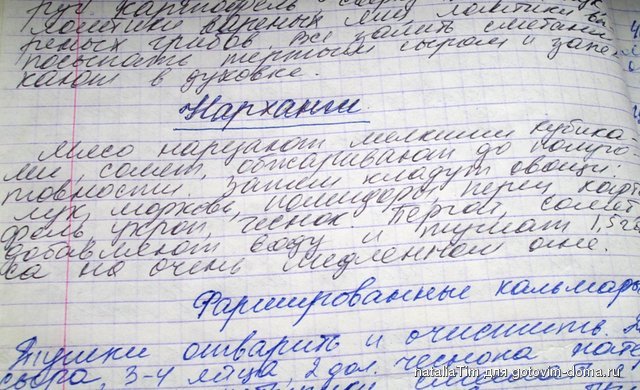 руч картофель
ломтики вареных яиц ломтики ва
реных грибов Всё залить сметаной
посыпать тертым сыром и запе
кают в духовке.
Нарханги
Мясо нарезают мелкими кубика-
ми солят, обжаривают до полуго
товности. Затем кладут овощи:
лук, морковь, помидоры, перец, карто
фель укроп, чеснок. Перчат, солят
добавляют воду и тушат 1,5 ча
са на очень медленном огне.
Фаршированные кальмары
Тушки отварить и очистить.
сыра, 3-4 яйца, 2 дол. чеснока
nataliaTim для gotovim-doma.ru